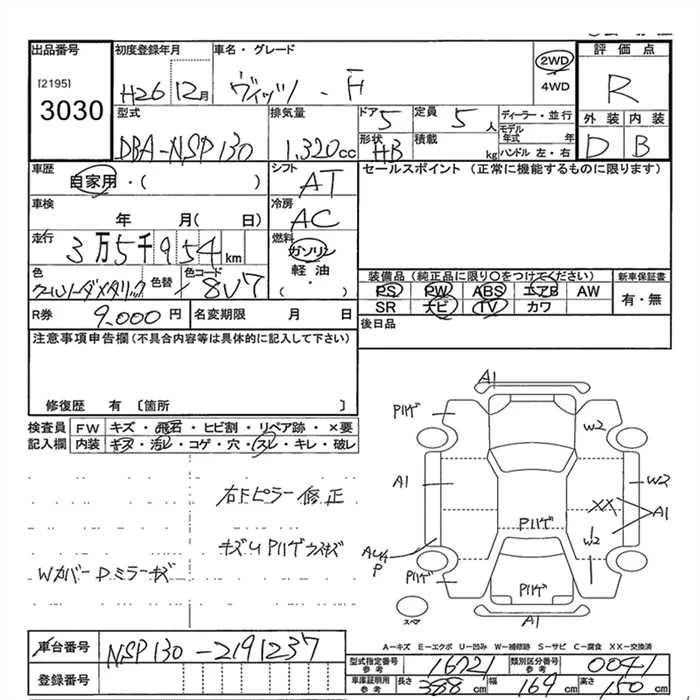 出品番号 初度登録年月 車名・グレード 評価点
[2195]
3030
H26 12月 ヴィッツ . F 2WD 4WD R
型式 排気量 ドア 5 定員 5人 ディーラー・並行 外装 内装
DBA-NSP130 1,320cc 形状 HB 積載 kg モデル年式 年 ハンドル 左・右 D B
車歴 自家用・( ) シフト AT セールスポイント (正常に機能するものに限ります)
車検 年 月( 日) 冷房 AC
走行 3万5千954km 燃料 ガソリン 軽油 ・( )
色 色替 色コード 8V7 装備品(純正品に限り〇をつけてください) 新車保証書
PS PW ABS エアB AW 有・無
R券 9,000円 名変期限 月 日 SR ナビ TV カワ
注意事項申告欄(不具合内容等は具体的に記入して下さい) 後日品
修復歴 有 〔箇所 〕
検査員記入欄 FW キズ・飛石・ヒビ割・リペア跡・×要
内装 キズ・汚レ・コゲ・穴・スレ・キレ・破レ
右Fピラー修正
Wカバー Dミラーキズ
A1
Pハゲ W2
A1 W2
XX A1
Pハゲ
W2
P
Pハゲ Pハゲ
スペア A1
A-キズ E-エクボ U-凹み W-補修跡 S-サビ C-腐食 XX-交換済
車台番号 NSP130-2191237 型式指定番号 参考 16921 類別区分番号 参考 0041
登録番号 車庫証明用 参考 長さ 388cm 幅 169cm 高さ 150cm